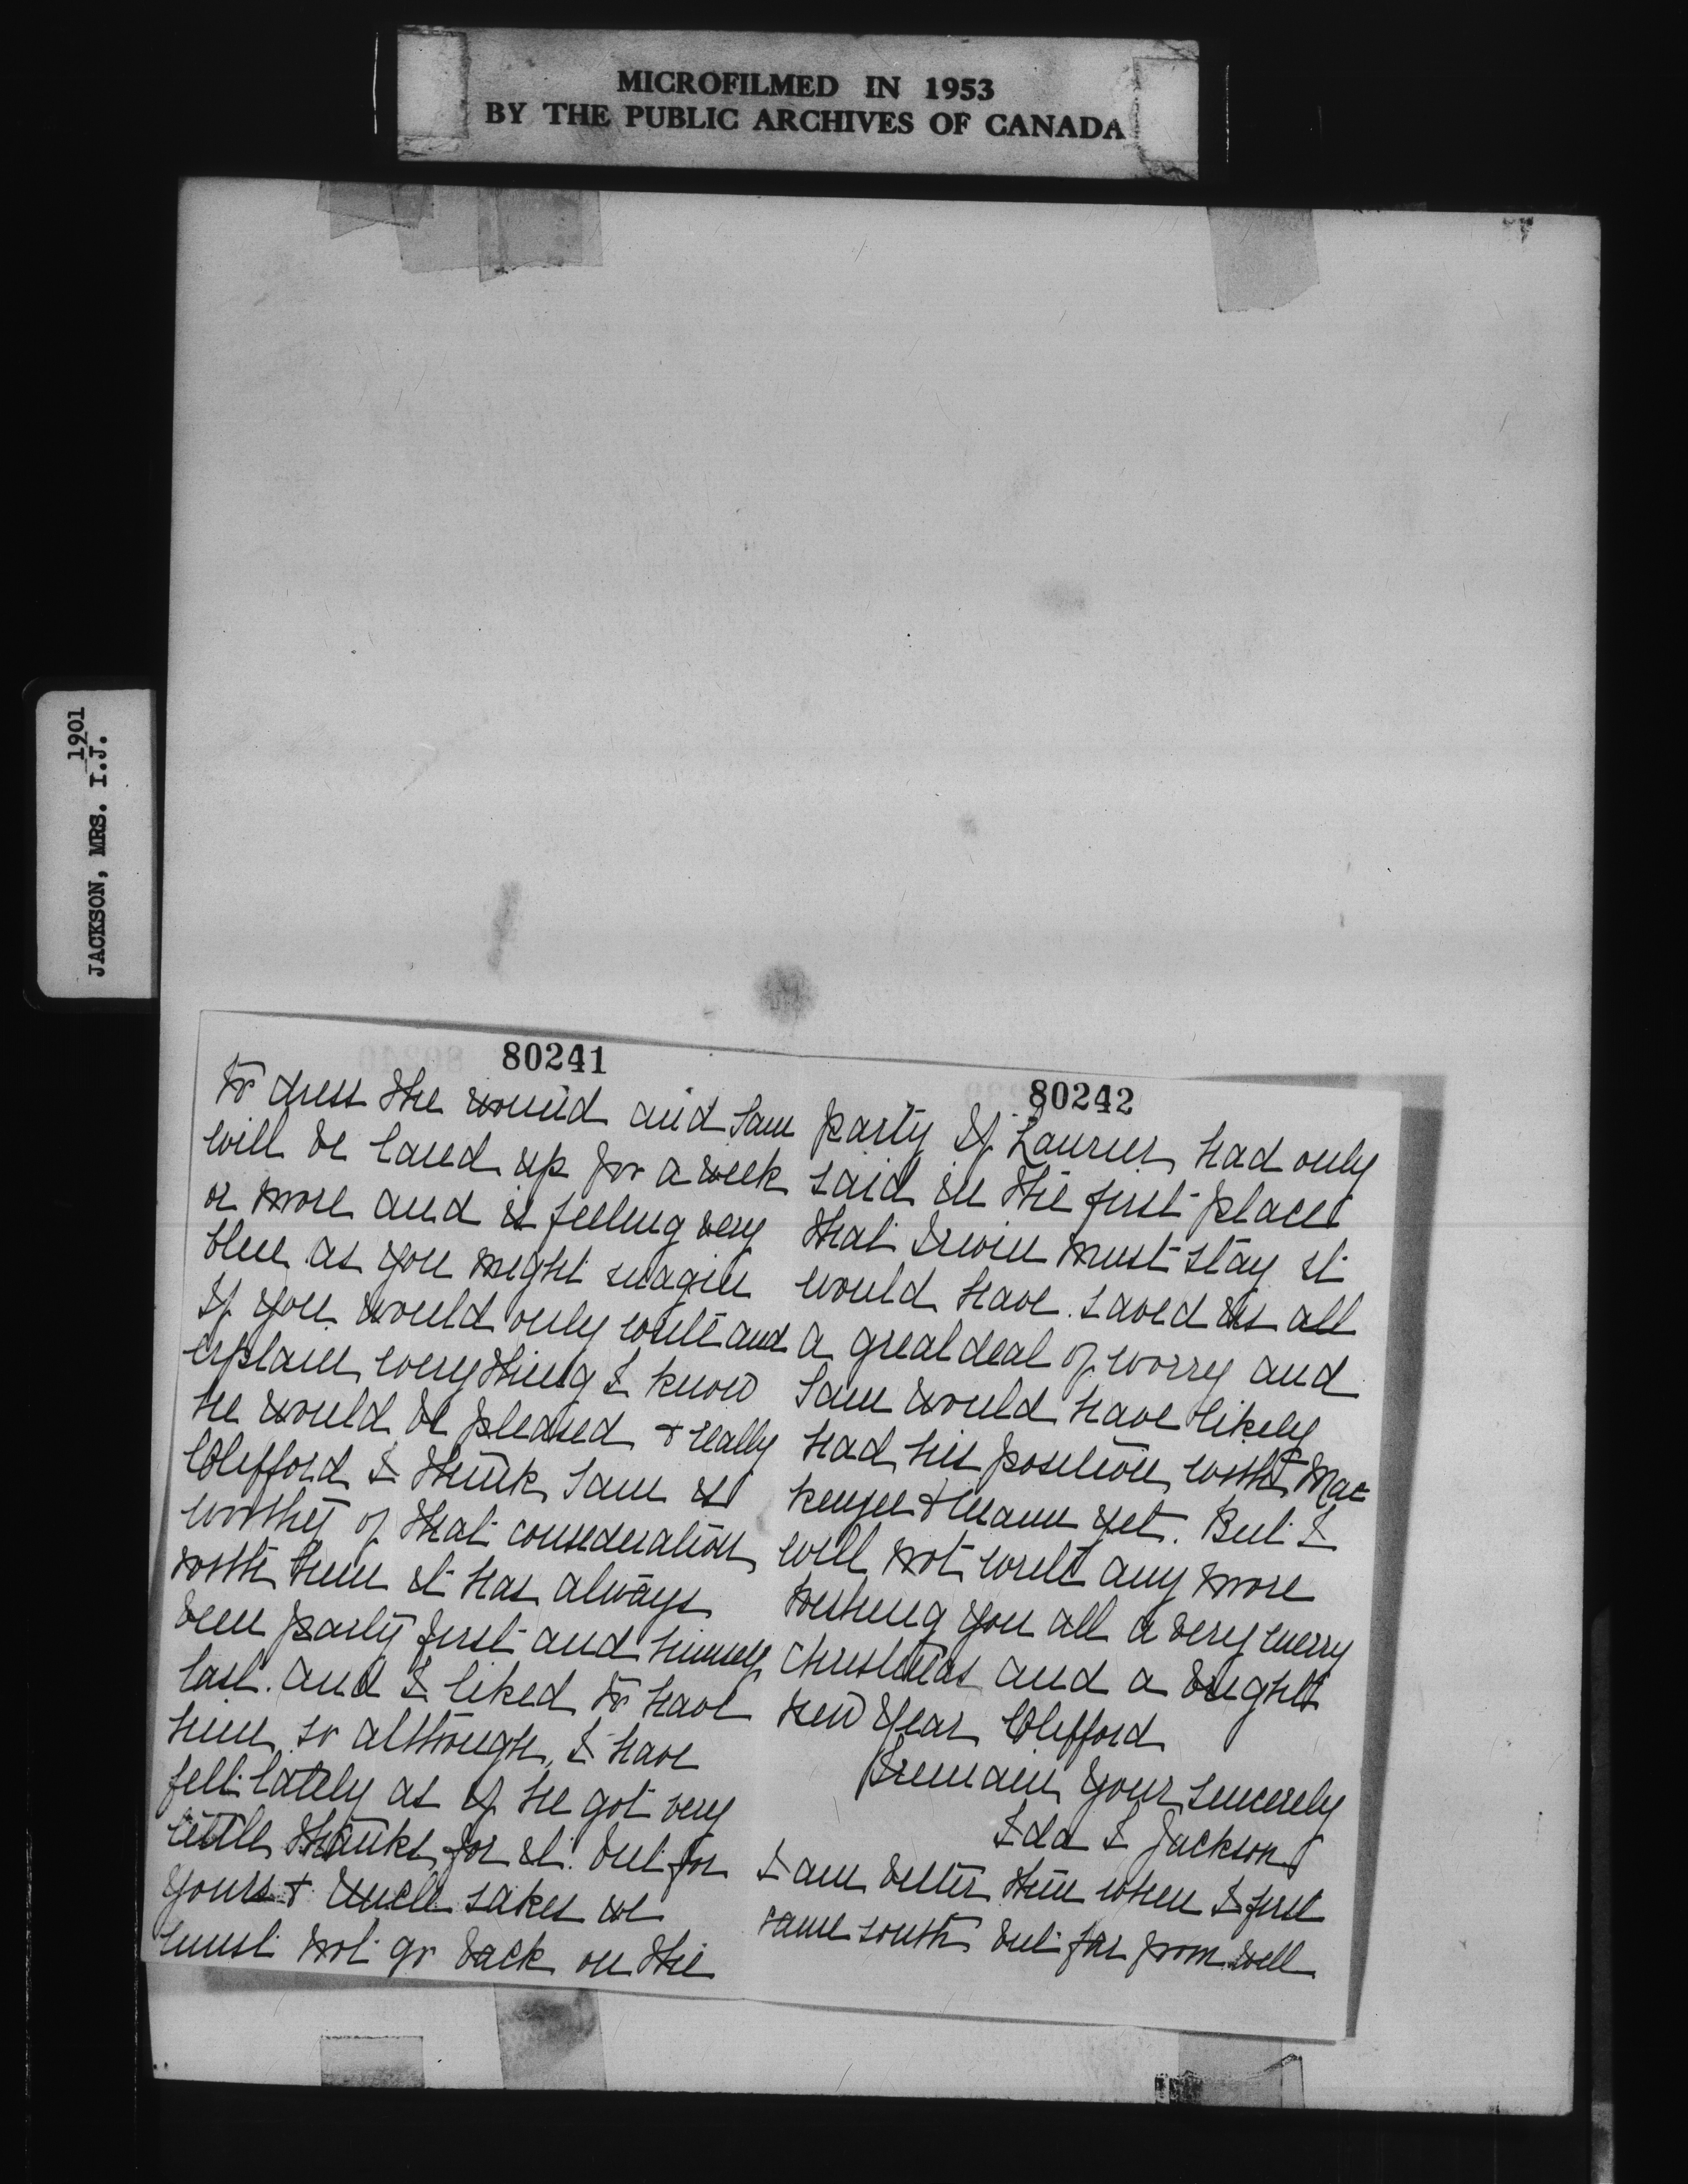 MICROFILMED IN 1953
BY THE PUBLIC ARCHIVES OF CANADA
1901
JACKSON, MRS. I.J.
80241
to dress the wound and Sam
will be laued up for a week
or more and is feeling very
blue as you might imagin
If you would only write and
explain everything I know
he would be pleased & really
Clifford I think Sam is
worthy of that consideration
with him it has always
been party first and himself
last. And I liked to have
him so although I have
felt lately as if he got very
little thanks for it. but for
yours & Uncle sakes we
must not go back on the
80242
party If Laurier had only
said in the first place
that Irwin must stay it
would have saved us all
a great deal of worry and
Sam would have likely
had his position with Mac
kenzee & Mann yet. But I
will not write any more
wishing you all a very merry
Christmas and a bright
New Year Clifford
I remain your sincerely
Ida I Jackson
I am better then when I first
came south but far from well